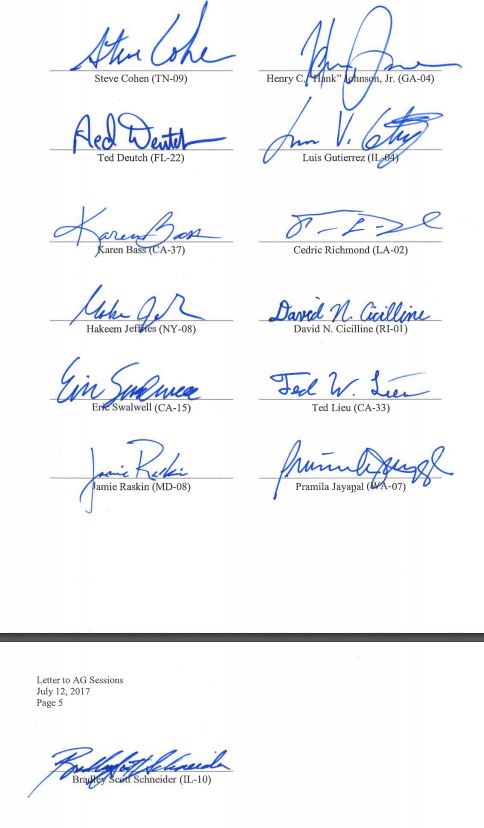 Steve Cohe
Steve Cohen (TN-09)
Henry C. "Hank" Johnson, Jr. (GA-04)
Ted Deutch
Ted Deutch (FL-22)
Luis V. Gutierrez
Luis Gutierrez (IL-04)
Karen Bass
Karen Bass (CA-37)
Cedric Richmond (LA-02)
Hakeem Jeffries (NY-08)
David N. Cicilline
David N. Cicilline (RI-01)
Eric Swalwell
Eric Swalwell (CA-15)
Ted W. Lieu
Ted Lieu (CA-33)
Jamie Raskin
Jamie Raskin (MD-08)
Pramila Jayapal
Pramila Jayapal (WA-07)
Letter to AG Sessions
July 12, 2017
Page 5
Bradley Scott Schneider
Bradley Scott Schneider (IL-10)